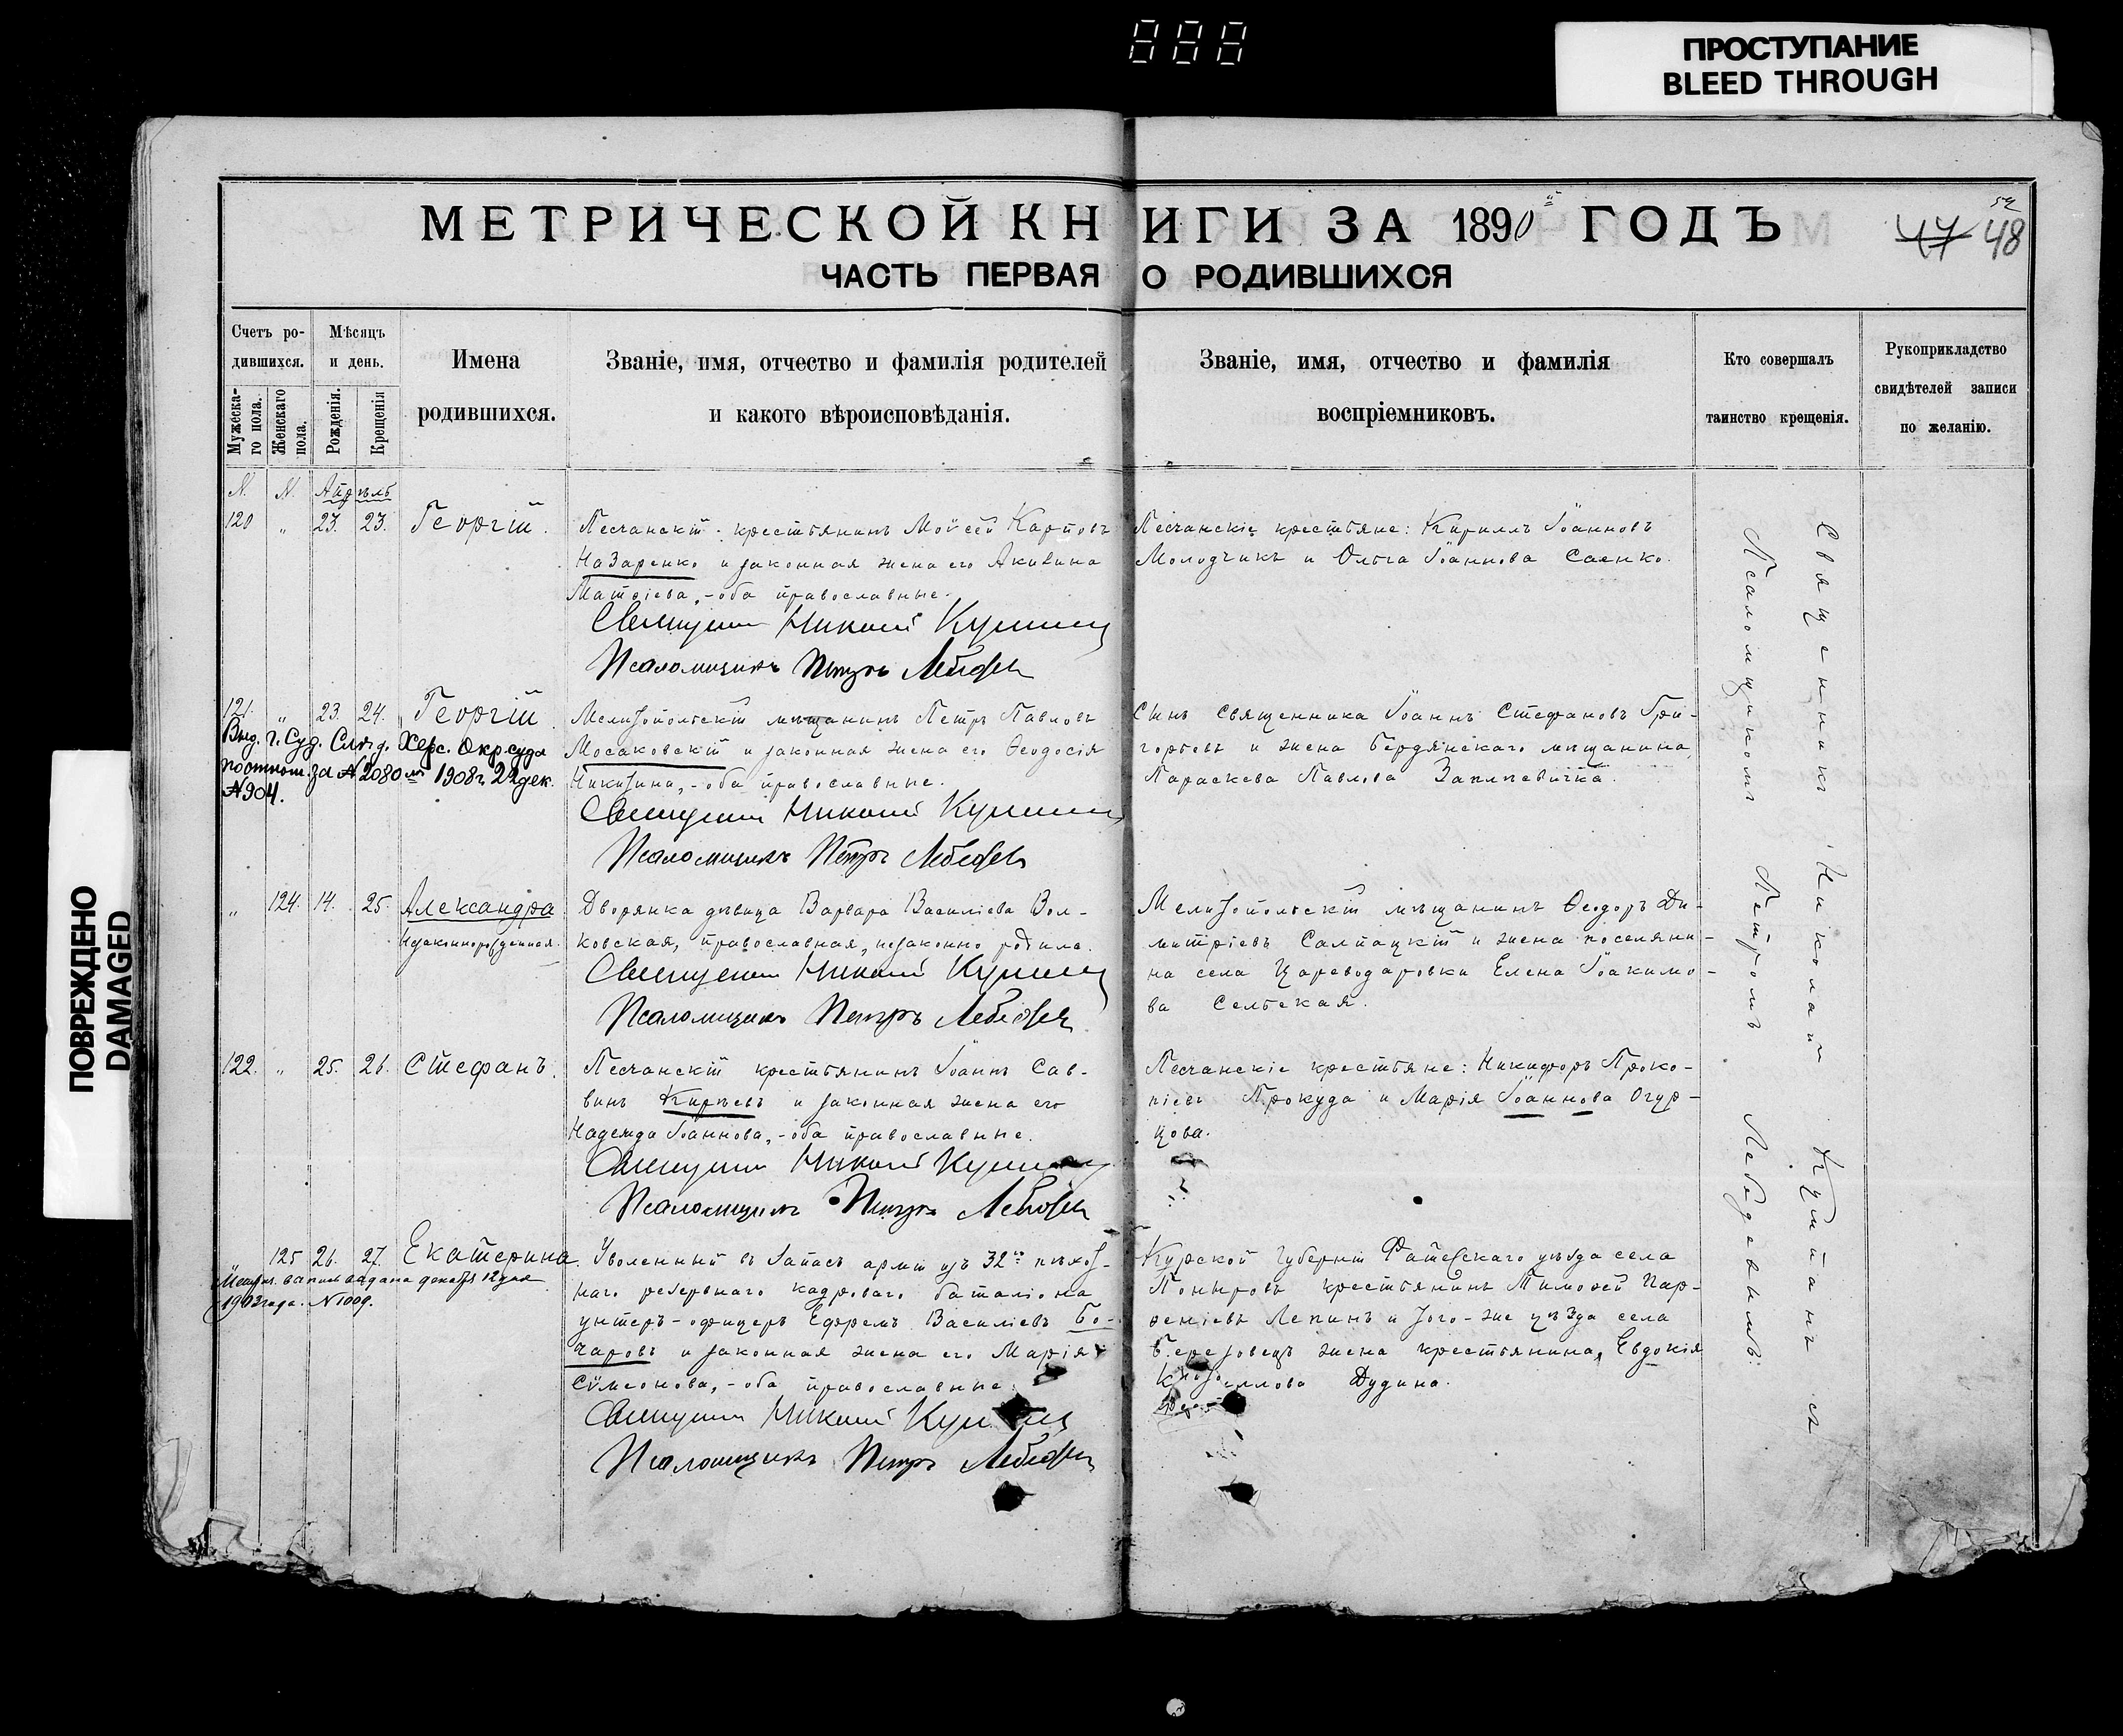 ПРОСТУПАНИЕ
BLEED THROUGH
ПОВРЕЖДЕНО
DAMAGED
МЕТРИЧЕСКОЙ КНИГИ ЗА 1890й ГОДЪ
47 48
ЧАСТЬ ПЕРВАЯ О РОДИВШИХСЯ
Счетъ ро-
дившихся.
Мужеска-
го пола.
Женскаго
пола.
Мѣсяцъ
и день.
Рожденія.
Крещенія
Имена
родившихся.
Званіе, имя, отчество и фамилія родителей
и какого вѣроисповѣданія.
Званіе, имя, отчество и фамилія
воспріемниковъ.
Кто совершалъ
таинство крещенія.
Рукоприкладство
свидѣтелей записи
по желанію.
N. N. Апрѣль
120 " 23. 23. Георгій.
Песчанскій крестьянинъ Моѵсей Карповъ
Назаренко и законная жена его Акилина
Матѳіева, - оба православные.
Священникъ Николай Купчинъ
Псаломщикъ Петръ Лебедевъ
Песчанскіе крестьяне: Кириллъ Іоанновъ
Молодчикъ и Ольга Іоаннова Саенко.
121. " 23. 24. Георгій
Выд. г. Суд. Слѣд. Херс. Окр. суда
за N 2080 1908 г. 22 дек.
N 904.
Мелитопольскій мѣщанинъ Петръ Павловъ
Мосаковскій и законная жена его Ѳеодосія
Никитина, - оба православные.
Священникъ Николай Купчинъ
Псаломщикъ Петръ Лебедевъ
Сынъ священника Іоаннъ Стефановъ Гри-
горьевъ и жена бердянскаго мѣщанина,
Параскева Павлова
" 124. 14. 25. Александра
Незаконнорожденная.
Дворянка дѣвица Варвара Василіева Вол-
ковская, православная, незаконно родила.
Священникъ Николай Купчинъ
Псаломщикъ Петръ Лебедевъ
Мелитопольскій мѣщанинъ Ѳеодоръ Ди-
митріевъ Салпацкій и жена поселяни-
на села Цареводаровки Елена Іоакимо-
ва Сельская.
122. " 25. 26. Стефанъ.
Песчанскій крестьянинъ Іоаннъ Сав-
винъ Кирѣевъ и законная жена его
Надежда Іоаннова, - оба православные.
Священникъ Николай Купчинъ
Псаломщикъ Петръ Лебедевъ
Песчанскіе крестьяне: Никифоръ Проко-
піевъ Прокуда и Марія Іоаннова Огур-
цова.
" 125 26. 27. Екатерина.
Метрич. выпись выдана декабря 12 дня
1903 года. N 1009.
Уволенный въ запасъ арміи изъ 32го пѣхот-
наго резервнаго кадроваго баталіона
унтеръ-офицеръ Ефремъ Василіевъ Бо-
чаровъ и законная жена его Марія
Сѵмеонова, - оба православные.
Священникъ Николай Купчинъ
Псаломщикъ Петръ Лебедевъ
Курской губерніи Фатежскаго уѣзда села
Поныровъ крестьянинъ Тимоѳей Пар-
ѳеніевъ Лепинъ и того-же уѣзда села
Березовецъ жена крестьянина, Евдокія
Дудина.
Священникъ Николай
Псаломщикомъ Петромъ Лебедевымъ.